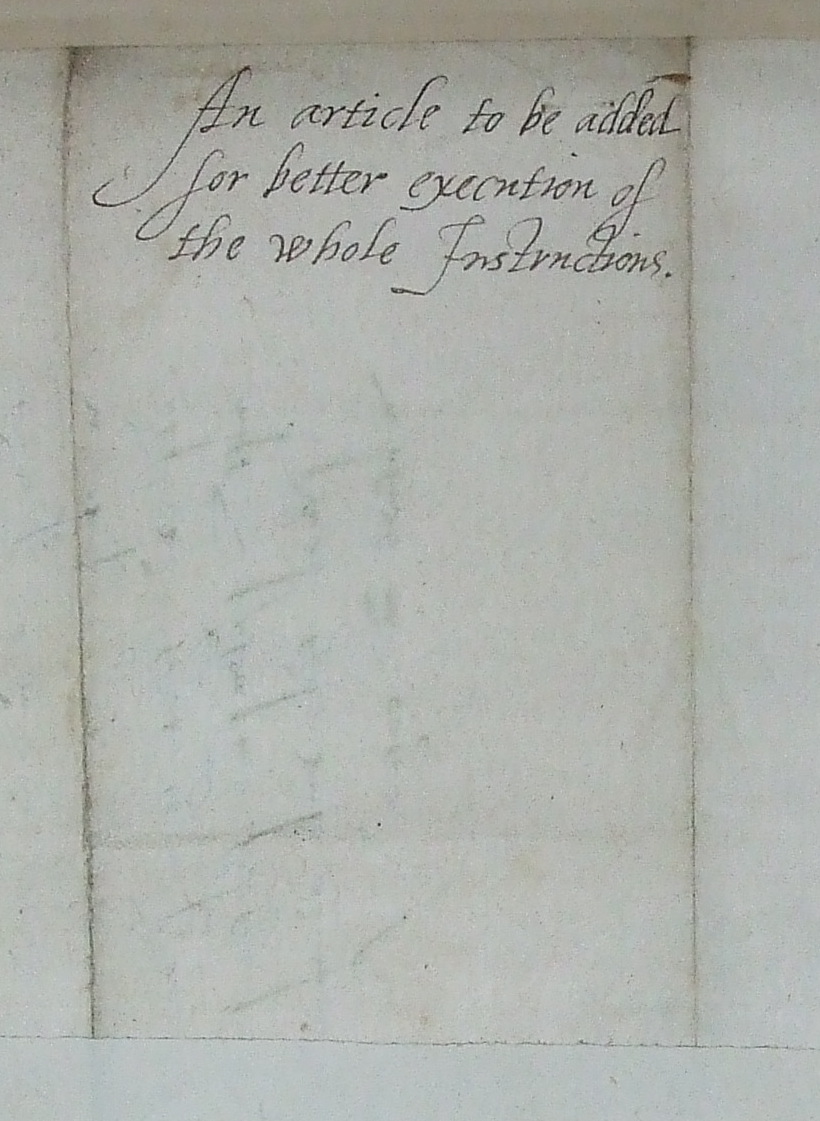 An article to be added
for better execution of
the whole Instructions.